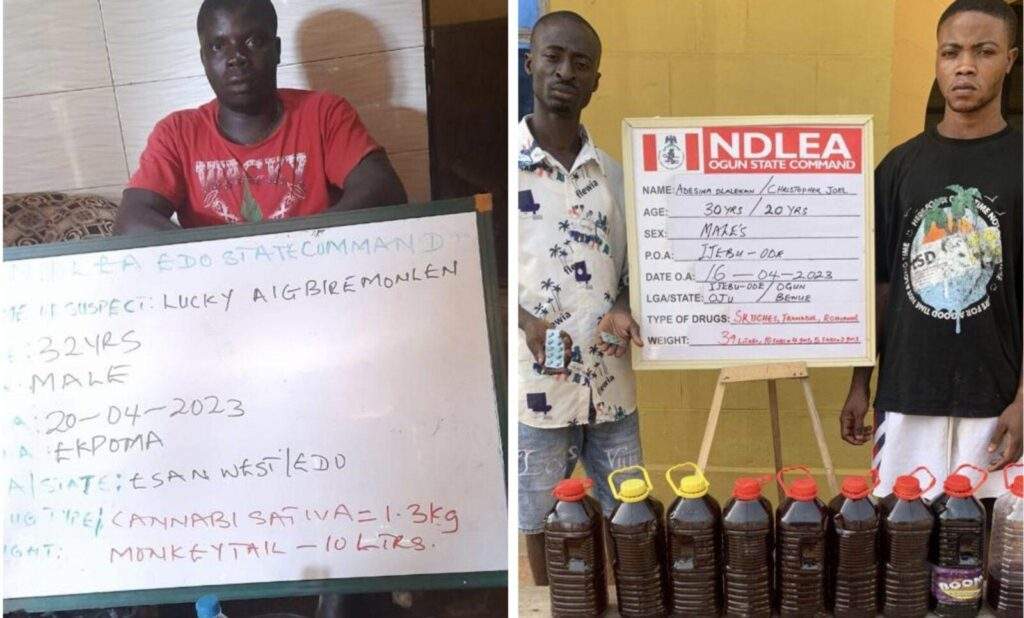 WACKY
NDLEA EDO STATE COMMAND
ME OF SUSPECT: LUCKY AIGBIREMONLEN
: 32YRS
MALE
A: 20-04-2023
A: EKPOMA
A/STATE: ESAN WEST/EDO
UG TYPE/ CANNABI SATIVA = 1.3kg
GHT: MONKEYTAIL - 10 LTRS.
NDLEA
OGUN STATE COMMAND
NAME: ADESINA OLALEKAN / CHRISTOPHER JOEL
AGE: 30 YRS / 20 YRS
SEX: MALE'S
P.O.A: IJEBU-ODE
DATE O.A: 16-04-2023
LGA/STATE: IJEBU-ODE / OGUN
OJU / BENUE
TYPE OF DRUGS:
WEIGHT: 39
flewia
HERE FOR A GOOD TIME NOT
BOOM